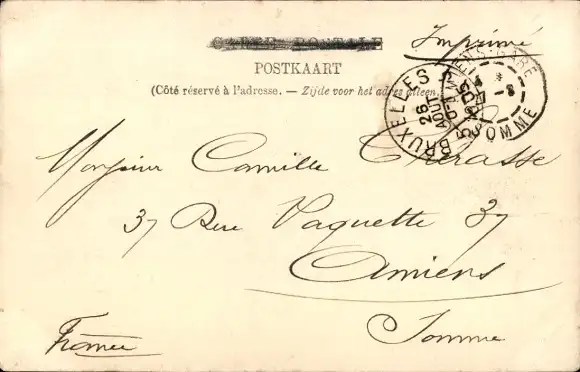 CARTE POSTALE
Imprimé
POSTKAART
(Côté réservé à l'adresse. — Zijde voor het adres alleen.)
BRUXELLES 5
26
AOUT
GARE
SOMME
Monsieur Camille Therasse
37 Rue Vaquette 37
Amiens
Somme
France